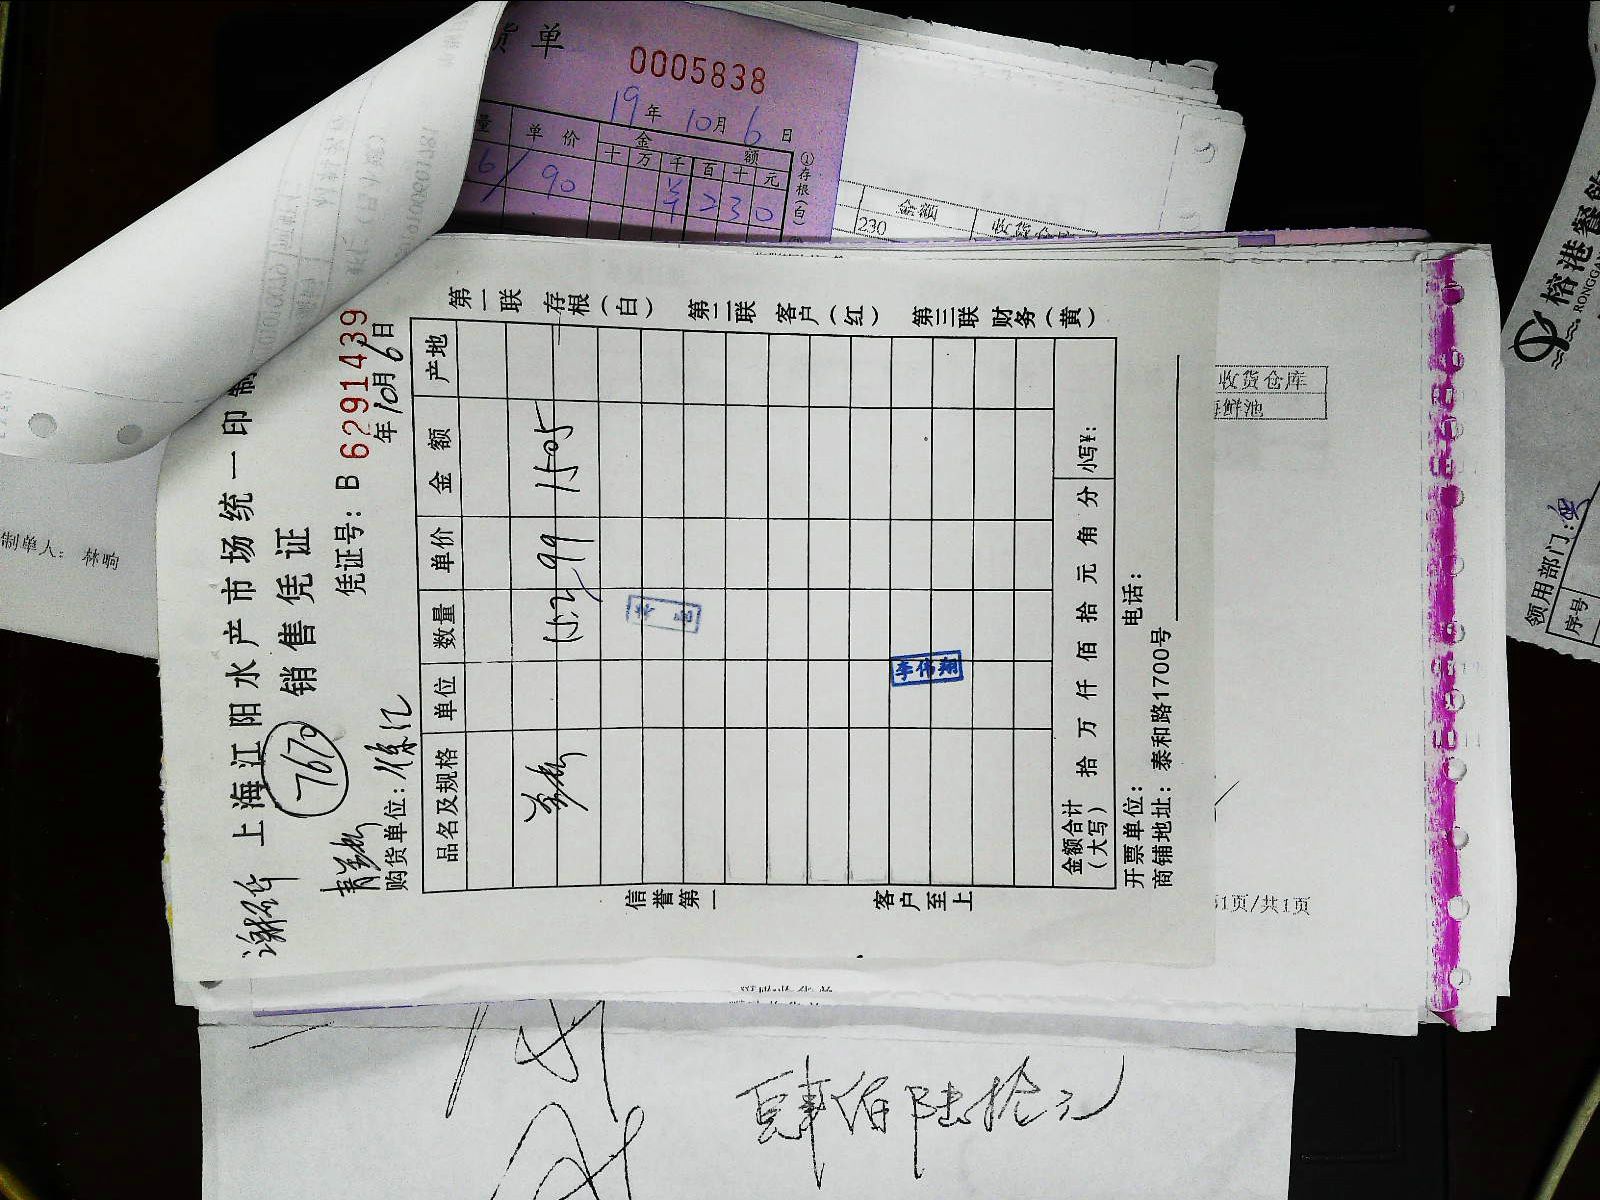 货单
0005838
19年10月6日
量 单价 金额
十 万 千 百 十 元
6 90 ¥ 2 3 0
①存根(白)
金额 收货仓库
230
上海江阳水产市场统一印制
7679 销售凭证
凭证号: B 6291439
购货单位:
年10月6日
品名及规格 单位 数量 单价 金额 产地
15.2 99 1505
李伟翔
金额合计(大写) 拾 万 仟 佰 拾 元 角 分 小写¥:
开票单位: 电话:
商铺地址: 泰和路1700号
第一联 存根(白) 第二联 客户(红) 第三联 财务(黄)
信誉第一 客户至上
制单人: 林响
收货仓库
海鲜池
第1页/共1页
榕港餐饮
RONGGAN
领用部门:
序号
肆佰陆拾元